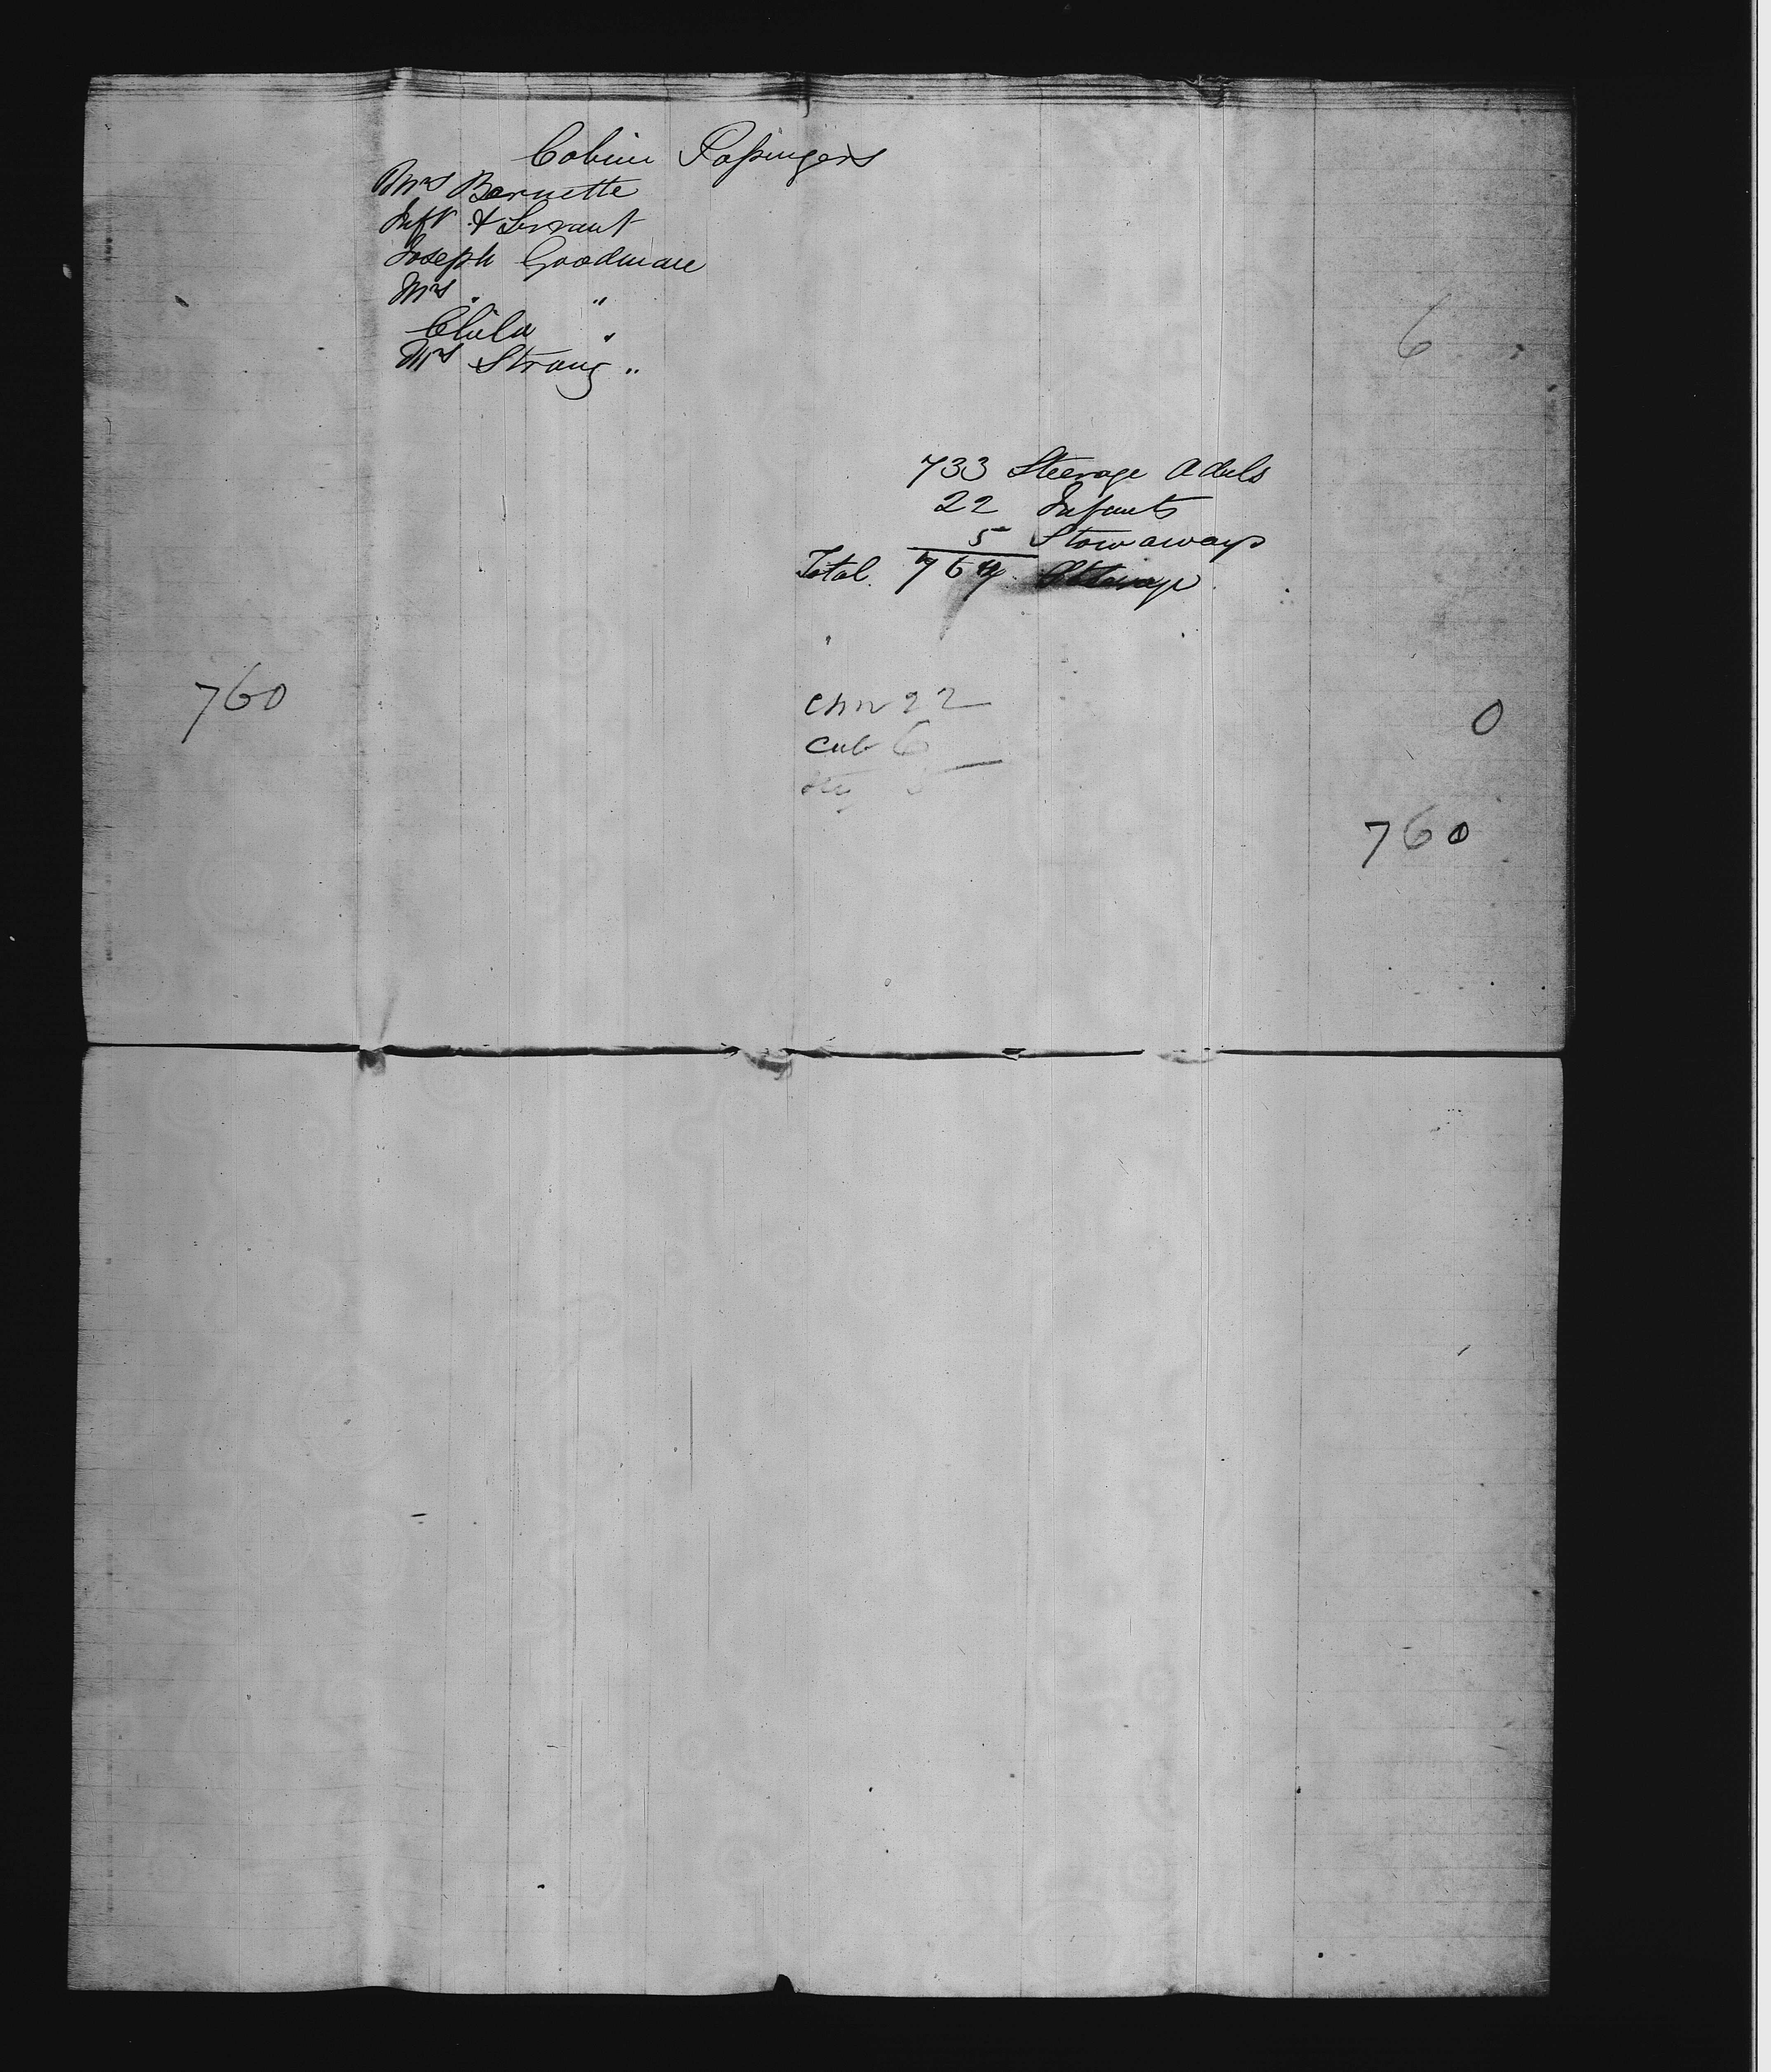 Cabin Passengers
Mrs Barnette
Inft & Servant
Joseph Goodman
Mrs "
Child "
Mrs Strong "
6
733 Steerage Adults
22 Infants
5 Stowaways
Total. 76
760
chn 22
0
cab 6
760